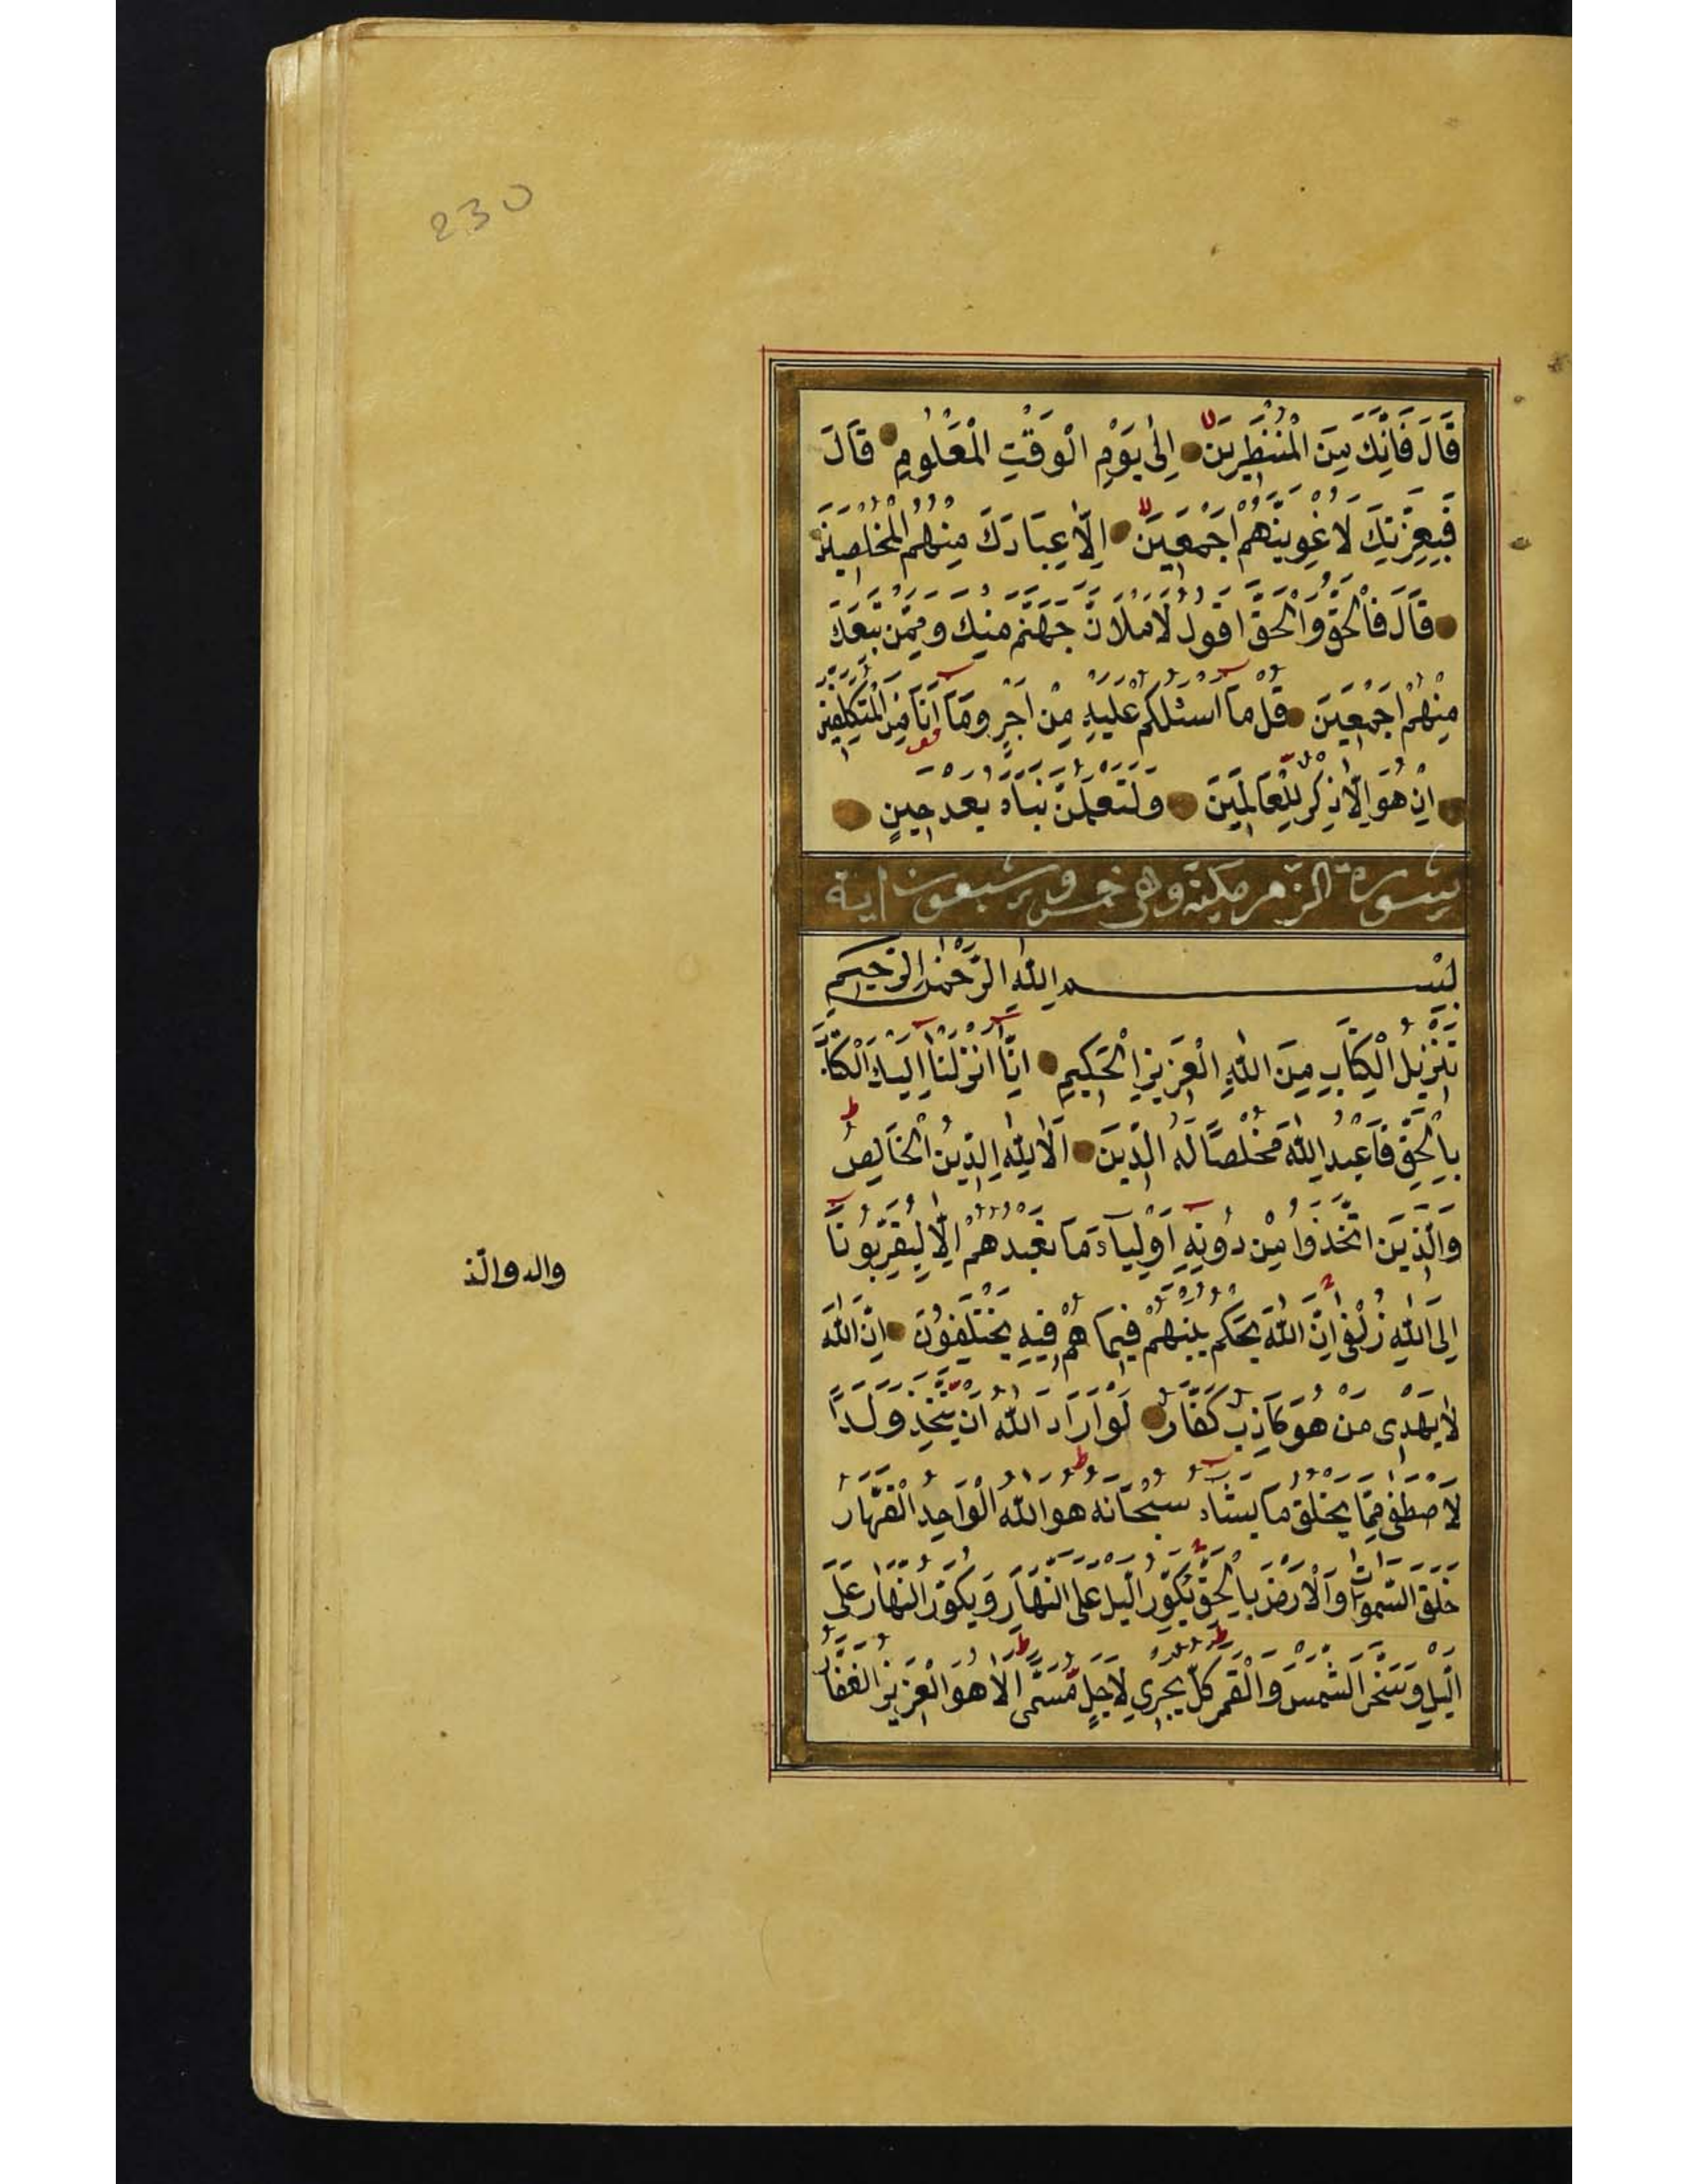 230
قَالَ فَاِنَّكَ مِنَ الْمُنْظَرِينَ اِلٰى يَوْمِ الْوَقْتِ الْمَعْلُومِ قَالَ
فَبِعِزَّتِكَ لَاُغْوِيَنَّهُمْ اَجْمَعِينَ اِلَّا عِبَادَكَ مِنْهُمُ الْمُخْلَصِينَ
قَالَ فَالْحَقُّ وَالْحَقَّ اَقُولُ لَاَمْلَاَنَّ جَهَنَّمَ مِنْكَ وَمِمَّنْ تَبِعَكَ
مِنْهُمْ اَجْمَعِينَ قُلْ مَا اَسْئَلُكُمْ عَلَيْهِ مِنْ اَجْرٍ وَمَا اَنَا مِنَ الْمُتَكَلِّفِينَ
اِنْ هُوَ اِلَّا ذِكْرٌ لِلْعَالَمِينَ وَلَتَعْلَمُنَّ نَبَاَهُ بَعْدَ حِينٍ
سورة الزمر مكية وهى خمس وسبعون اية
بِسْمِ اللهِ الرَّحْمٰنِ الرَّحِيمِ
تَنْزِيلُ الْكِتَابِ مِنَ اللهِ الْعَزِيزِ الْحَكِيمِ اِنَّا اَنْزَلْنَا اِلَيْكَ الْكِتَابَ
بِالْحَقِّ فَاعْبُدِ اللهَ مُخْلِصًا لَهُ الدِّينَ اَلَا لِلّٰهِ الدِّينُ الْخَالِصُ
وَالَّذِينَ اتَّخَذُوا مِنْ دُونِهِ اَوْلِيَاءَ مَا نَعْبُدُهُمْ اِلَّا لِيُقَرِّبُونَا
اِلَى اللهِ زُلْفٰى اِنَّ اللهَ يَحْكُمُ بَيْنَهُمْ فِيمَا هُمْ فِيهِ يَخْتَلِفُونَ اِنَّ اللهَ
لَا يَهْدِى مَنْ هُوَ كَاذِبٌ كَفَّارٌ لَوْ اَرَادَ اللهُ اَنْ يَتَّخِذَ وَلَدًا
لَاصْطَفٰى مِمَّا يَخْلُقُ مَا يَشَاءُ سُبْحَانَهُ هُوَ اللهُ الْوَاحِدُ الْقَهَّارُ
خَلَقَ السَّمٰوَاتِ وَالْاَرْضَ بِالْحَقِّ يُكَوِّرُ الَّيْلَ عَلَى النَّهَارِ وَيُكَوِّرُ النَّهَارَ عَلَى
الَّيْلِ وَسَخَّرَ الشَّمْسَ وَالْقَمَرَ كُلٌّ يَجْرِى لِاَجَلٍ مُسَمًّى اَلَا هُوَ الْعَزِيزُ الْغَفَّارُ